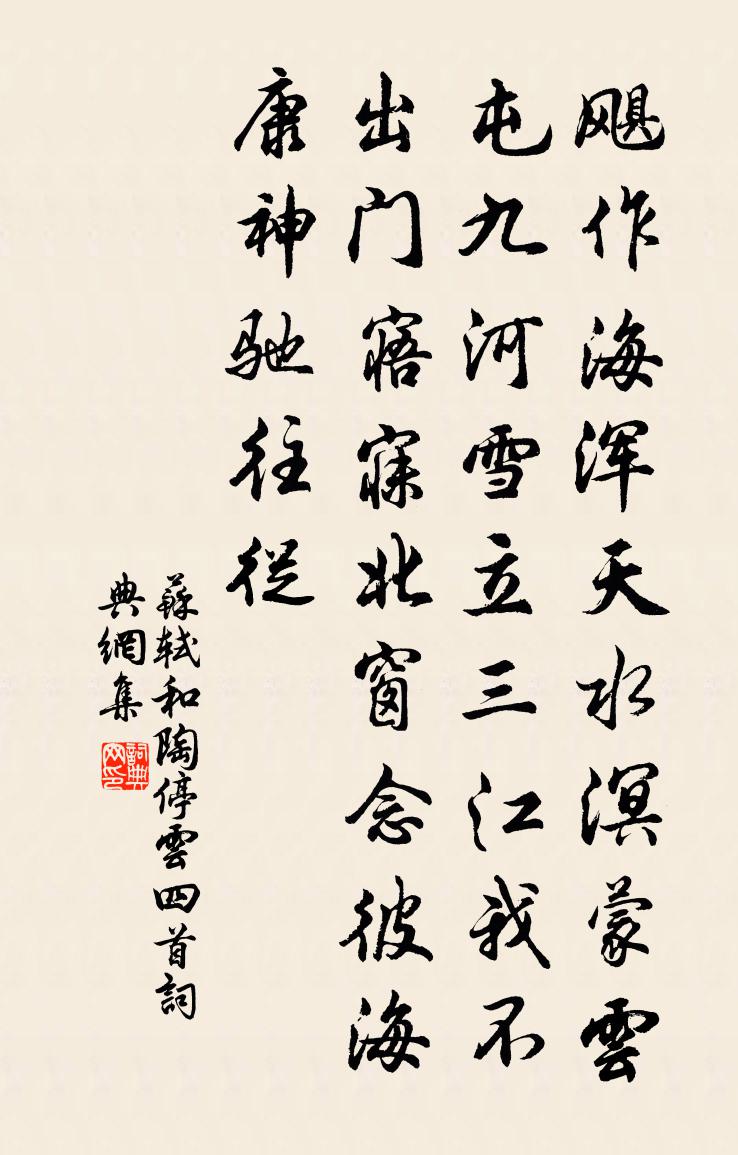 飓作海浑天水溟蒙雲
屯九河雪立三江我不
出门寤寐北窗念彼海
康神驰往從
蘇軾和陶停雲四首詞
典網集
詞典网印